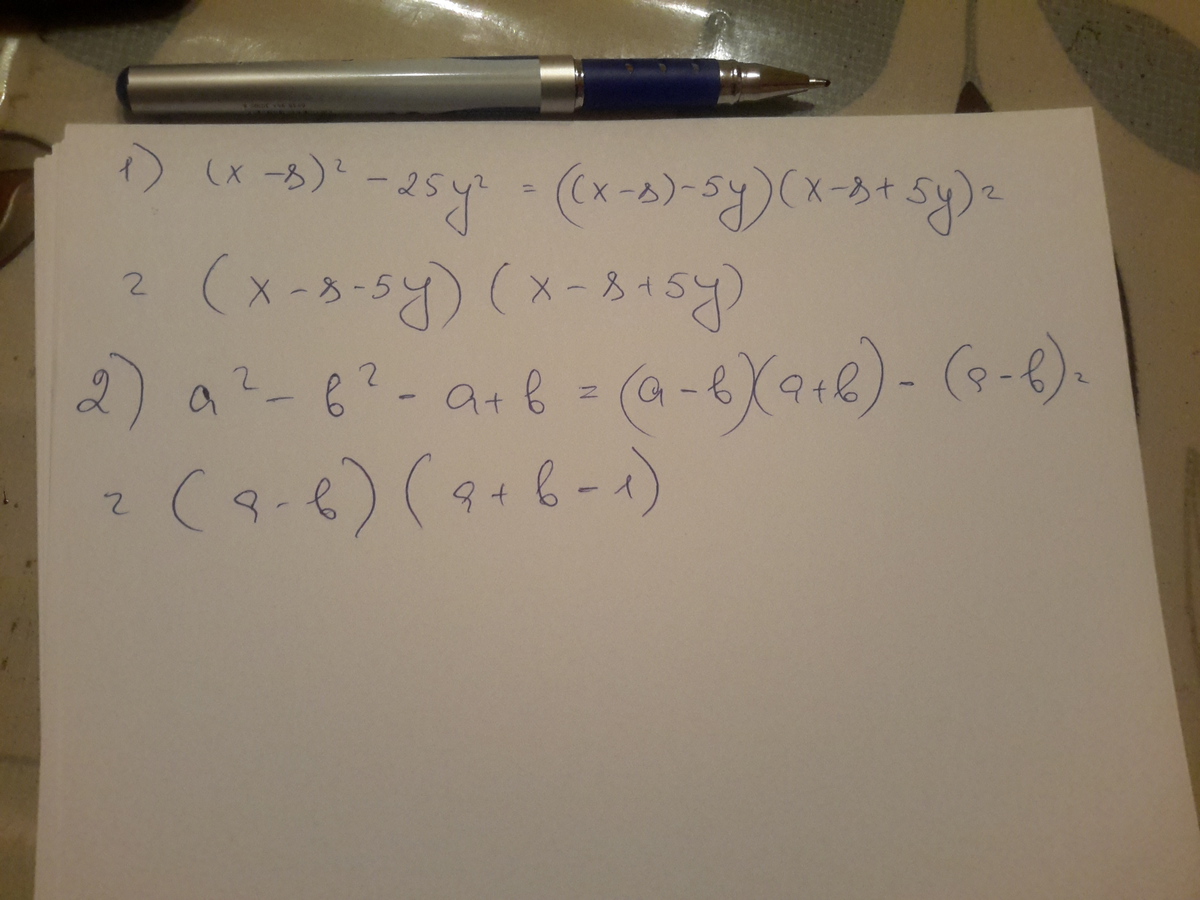 1) (x-8)² - 25y² = ((x-8)-5y)(x-8+5y) =
= (x-8-5y)(x-8+5y)
2) a² - b² - a+b = (a-b)(a+b) - (a-b) =
= (a-b)(a+b-1)